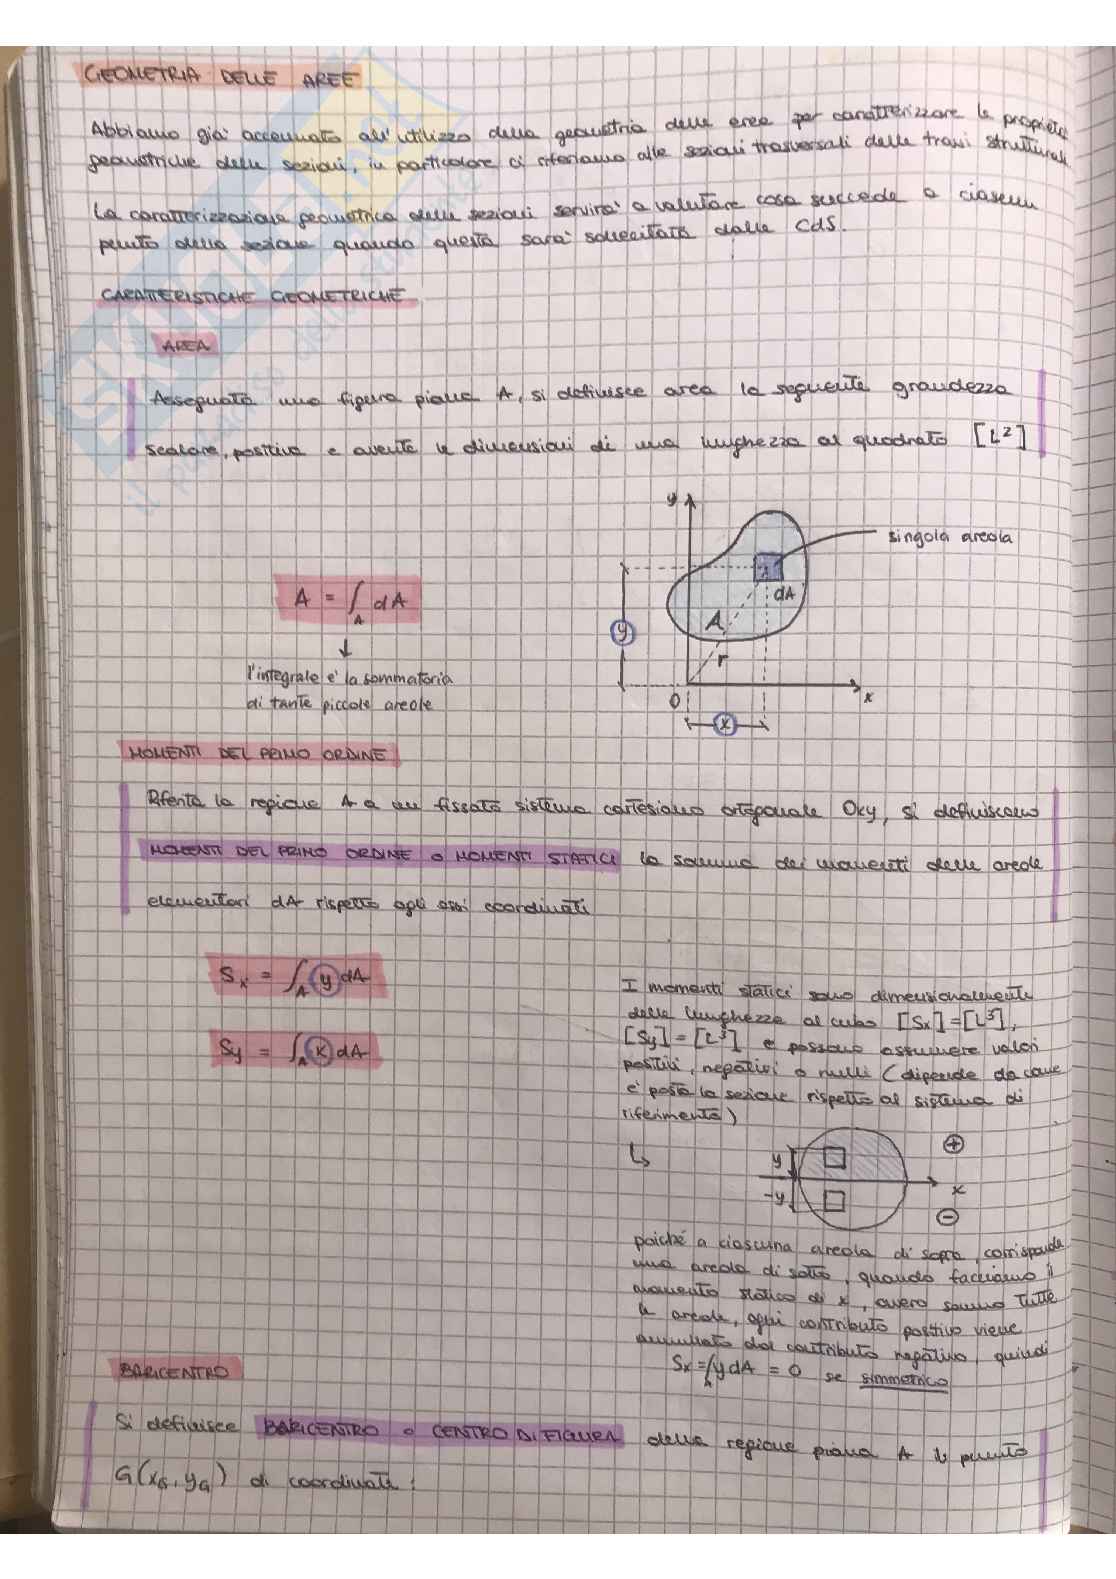 GEOMETRIA DELLE AREE
Abbiamo già accennato all'utilizzo della geometria delle aree per caratterizzare le proprietà
geometriche delle sezioni, in particolare ci riferiamo alle sezioni trasversali delle travi strutturali
La caratterizzazione geometrica delle sezioni servirà a valutare cosa succede a ciascun
punto della sezione quando questa sarà sollecitata dalle CdS.
CARATTERISTICHE GEOMETRICHE
AREA
Assegnata una figura piana A, si definisce area la seguente grandezza
scalare, positiva e avente le dimensioni di una lunghezza al quadrato [L²]
y
singola areola
dA
A
y
r
O
x
x
A = ∫_A dA
↓
l'integrale e' la sommatoria
di tante piccole areole
MOMENTI DEL PRIMO ORDINE
Riferita la regione A a un fissato sistema cartesiano ortogonale Oxy, si definiscono
MOMENTI DEL PRIMO ORDINE o MOMENTI STATICI la somma dei momenti delle areole
elementari dA rispetto agli assi coordinati
Sx = ∫_A y dA
Sy = ∫_A x dA
I momenti statici sono dimensionalmente
delle lunghezze al cubo [Sx]=[L³],
[Sy]=[L³] e possono assumere valori
positivi, negativi o nulli (dipende da come
e' posta la sezione rispetto al sistema di
riferimento)
↳
y
-y
x
+
−
poiché a ciascuna areola di sopra, corrisponde
una areola di sotto, quando facciamo il
momento statico di x, ovvero sommo tutte
le areole, ogni contributo positivo viene
annullato dal contributo negativo, quindi
Sx = ∫_A y dA = 0 se simmetrico
BARICENTRO
Si definisce BARICENTRO o CENTRO DI FIGURA della regione piana A il punto
G(xG, yG) di coordinate: